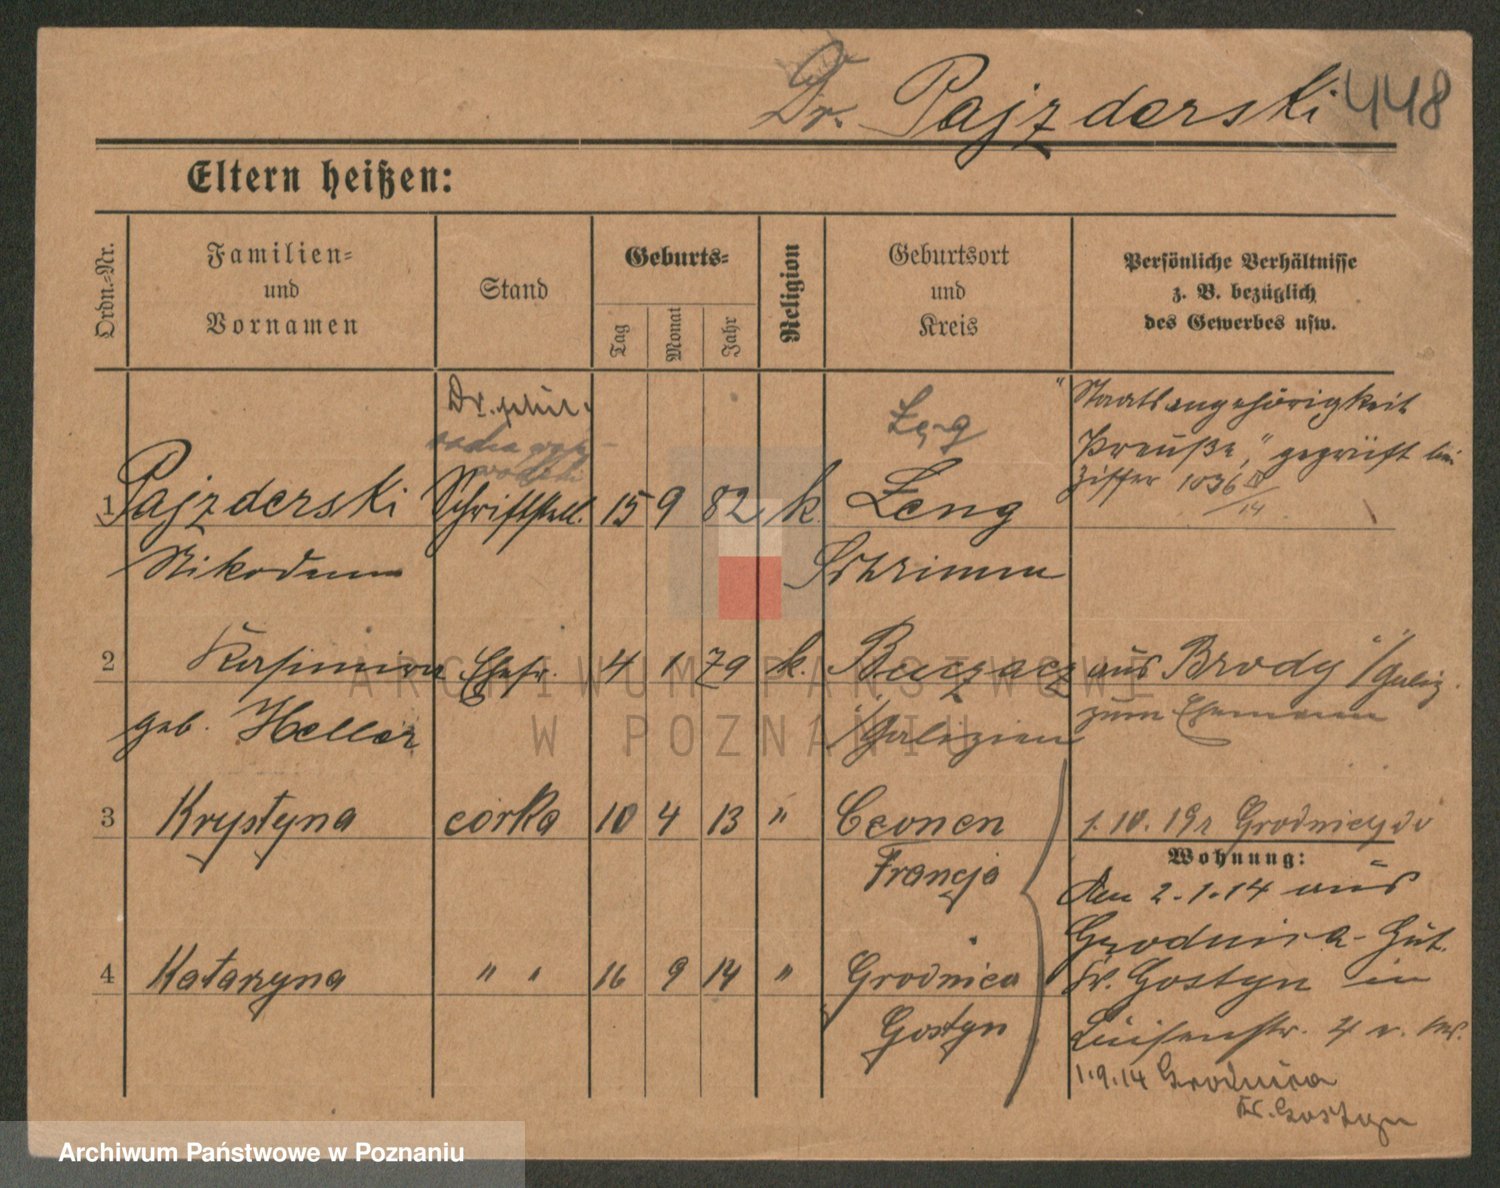 Dr. Pajzderski 448
Eltern heißen:
Ordn.-Nr.
Familien-
und
Vornamen
Stand
Geburts-
Tag
Monat
Jahr
Religion
Geburtsort
und
Kreis
Persönliche Verhältnisse
z. B. bezüglich
des Gewerbes usw.
Dr. phil.
"Staatsangehörigkeit
Preuße," geprüft
Ziffer 1036
1 Pajzderski Schriftstell. 15 9 82 k. Żeng
Nikodem Schrimm
2 Kasimira Ehefr. 4 1 79 k. Buczacz aus Brody i/Galiz.
geb. Heller i/Galizien zum Ehemann
3 Krystyna córka 10 4 13 " Ceonen
Francja
1. 10. 19
Wohnung:
Den 2.1.14 aus
Grodnica-Gut
Kr. Gostyn in
Luisenstr. 4
1.9.14 Grodnica
Kr. Gostyn
4 Katarzyna " " 16 9 14 " Grodnica
Gostyn
ARCHIWUM PAŃSTWOWE
W POZNANIU
Archiwum Państwowe w Poznaniu